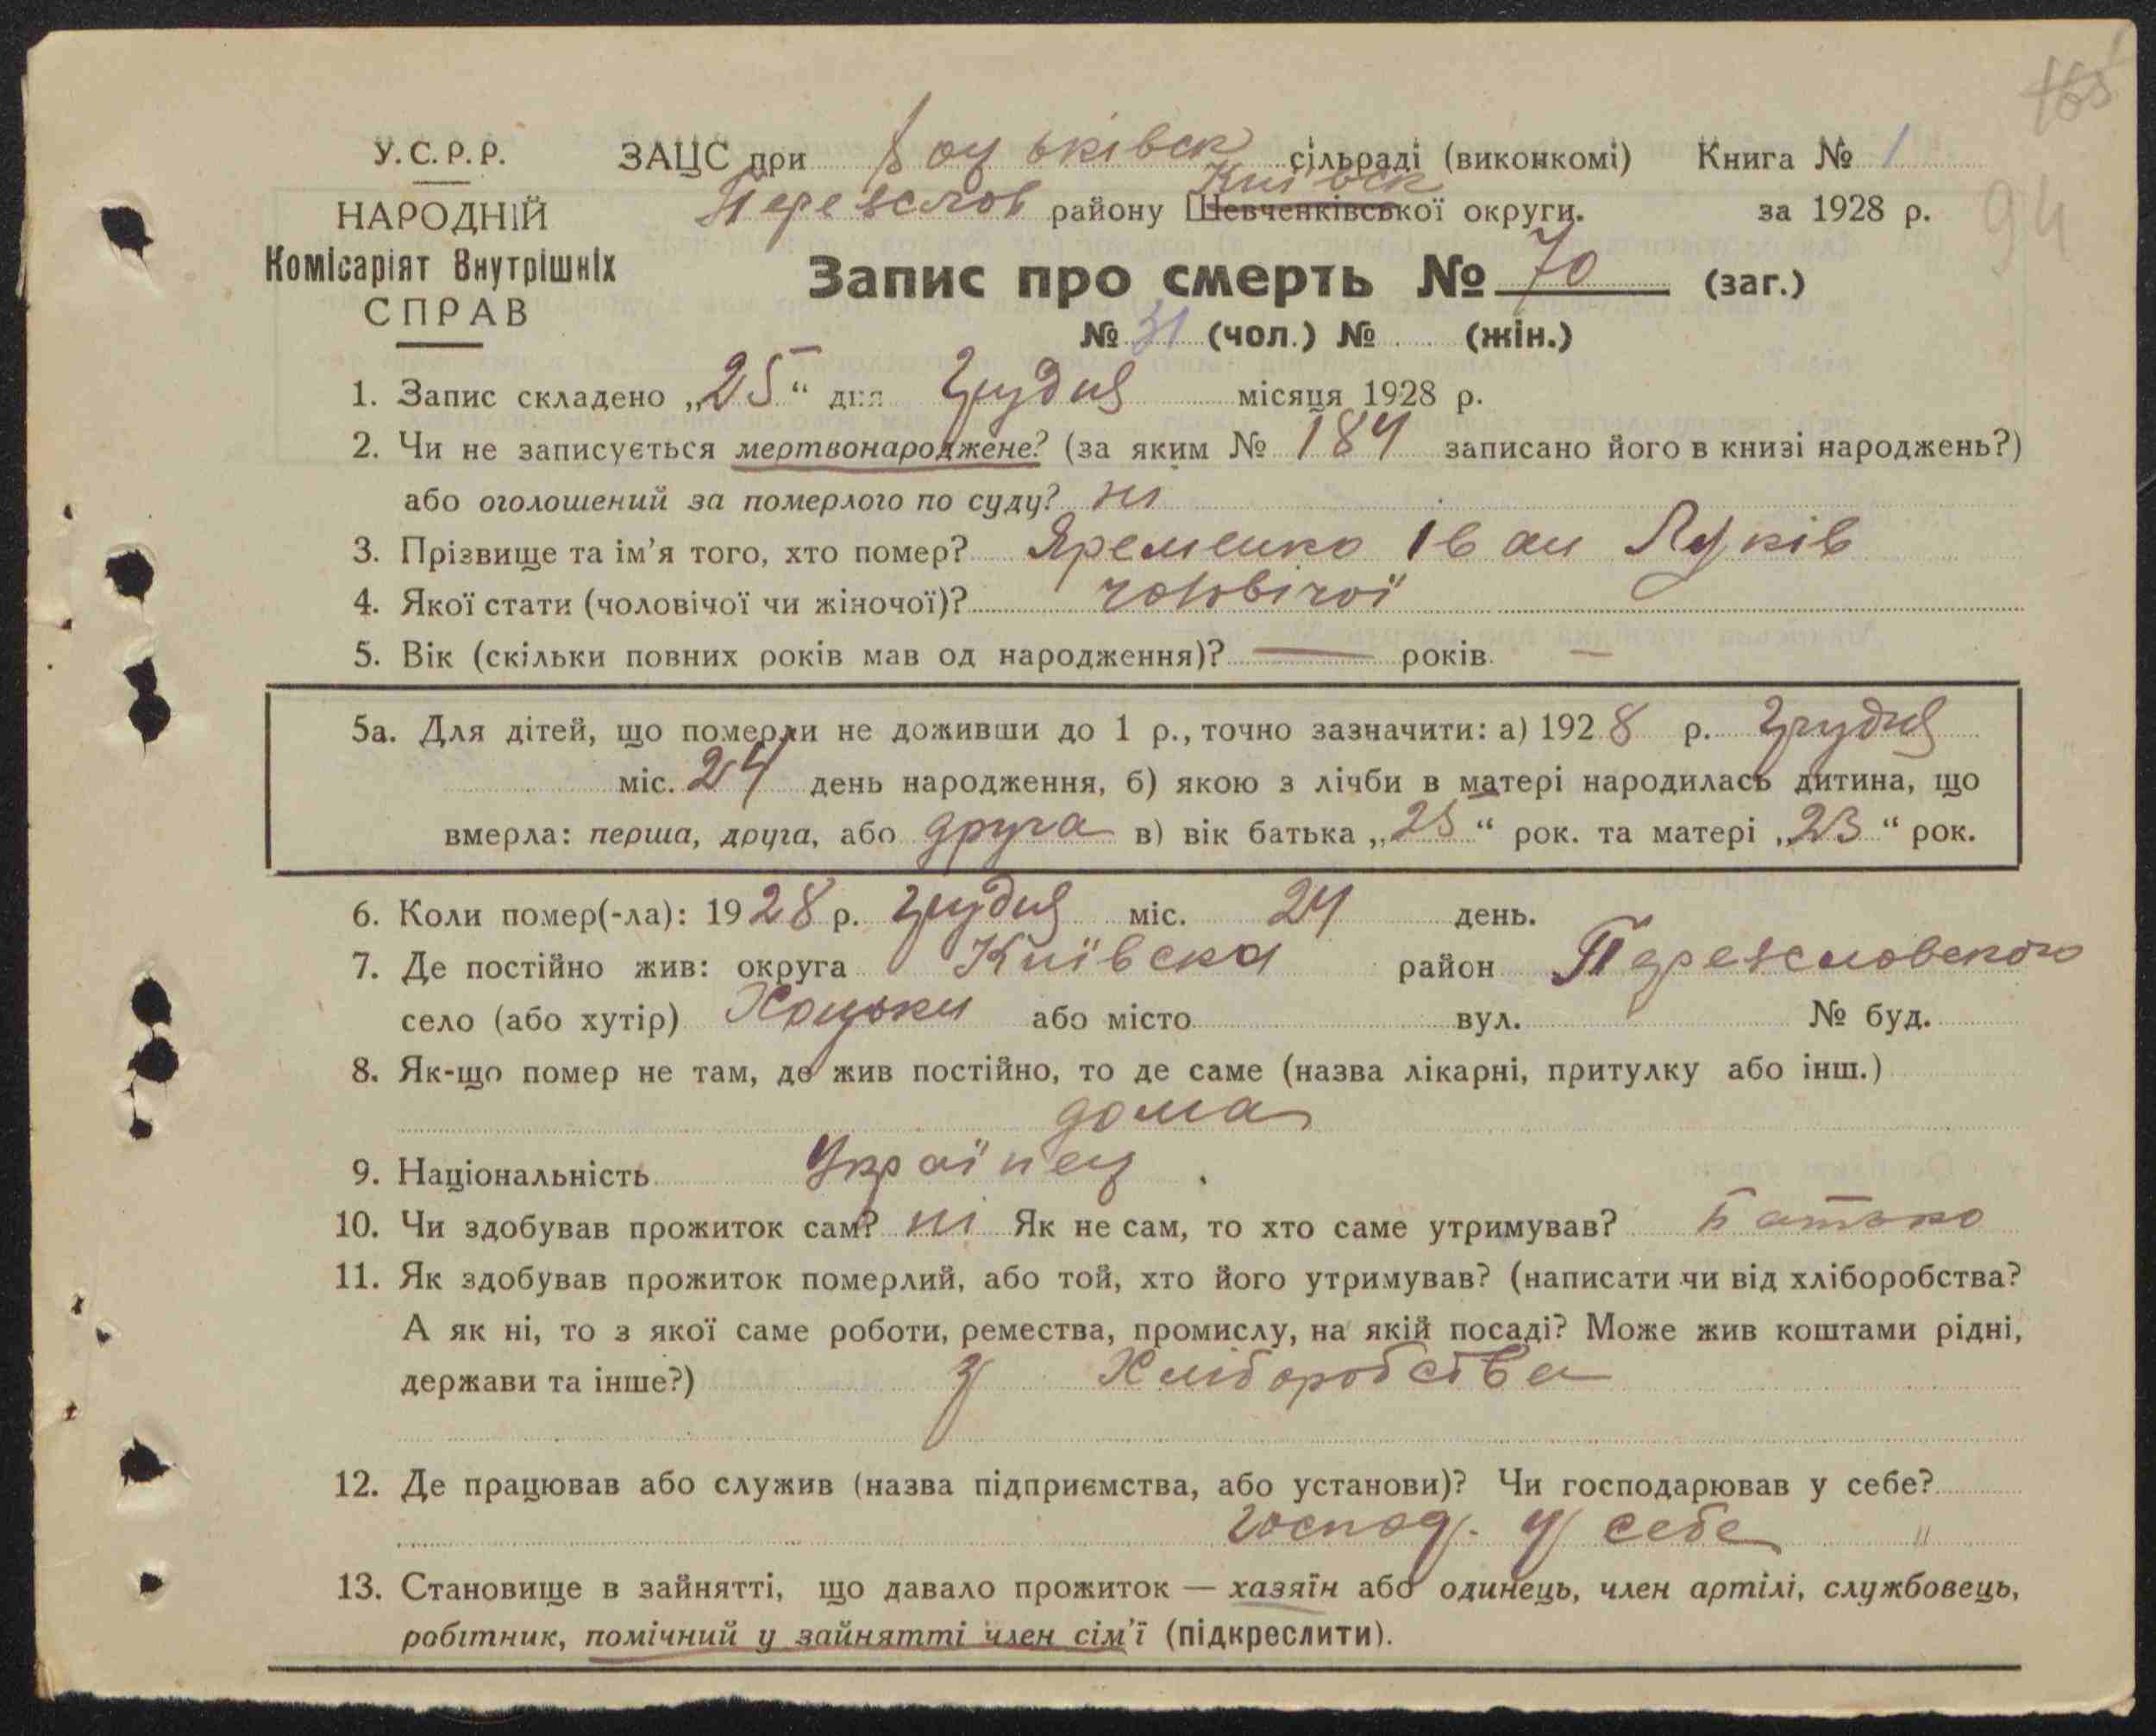 165
У.С.Р.Р. ЗАЦС при Хоцьківск сільраді (виконкомі) Книга № 1
Київск
НАРОДНІЙ Переяслов району Шевченківської округи. за 1928 р. 94
Комісаріят Внутрішніх
СПРАВ
Запис про смерть № 70 (заг.)
№ 31 (чол.) № (жін.)
1. Запис складено „25“ дня Грудня місяця 1928 р.
2. Чи не записується мертвонароджене? (за яким № 184 записано його в книзі народжень?)
або оголошений за померлого по суду? ні
3. Прізвище та ім’я того, хто помер? Яременко Іван Луків
4. Якої стати (чоловічої чи жіночої)? чоловічої
5. Вік (скільки повних років мав од народження)? — років —
5а. Для дітей, що померли не доживши до 1 р., точно зазначити: а) 1928 р. Грудня
міс. 24 день народження, б) якою з лічби в матері народилась дитина, що
вмерла: перша, друга, або друга в) вік батька „25“ рок. та матері „23“ рок.
6. Коли помер(-ла): 1928 р. Грудня міс. 24 день.
7. Де постійно жив: округа Київска район Переясловского
село (або хутір) Хоцьки або місто вул. № буд.
8. Як-що помер не там, де жив постійно, то де саме (назва лікарні, притулку або інш.)
дома
9. Національність Українец
10. Чи здобував прожиток сам? ні Як не сам, то хто саме утримував? Батько
11. Як здобував прожиток померлий, або той, хто його утримував? (написати чи від хліборобства?
А як ні, то з якої саме роботи, ремества, промислу, на якій посаді? Може жив коштами рідні,
держави та інше?) З Хліборобства
12. Де працював або служив (назва підприємства, або установи)? Чи господарював у себе?
господ. у себе "
13. Становище в зайнятті, що давало прожиток — хазяїн або одинець, член артілі, службовець,
робітник, помічний у зайнятті член сім’ї (підкреслити).